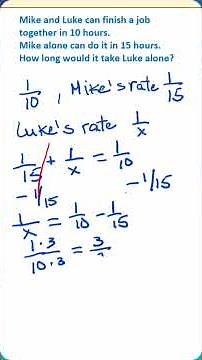 Mike and Luke can finish a job
together in 10 hours.
Mike alone can do it in 15 hours.
How long would it take Luke alone?
1/10 , Mike's rate 1/15
Luke's rate 1/x
1/15 + 1/x = 1/10
- 1/15 - 1/15
1/x = 1/10 - 1/15
1·3/10·3 = 3/